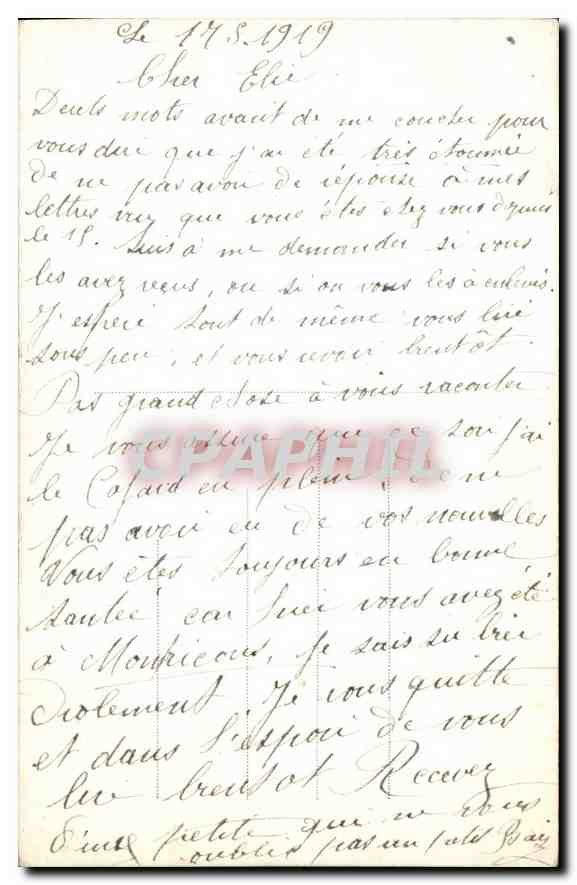 Le 17.5.1919
Cher Elie
Deuls mots avant de me coucher pour
vous dire que j'ai été très étonnée
de ne pas avoir de réponse à mes
lettres vu que vous êtes chez vous depuis
le 15. Suis à me demander si vous
les avez reçus, ou si on vous les à enlevés.
J'espère tout de même vous lire
sous peu, et vous revoir bientôt.
Pas grand chose à vous raconter
Je vous assure que ce soir j'ai
le Cafard en plein de ne
pas avoir eu de vos nouvelles
Vous êtes toujours en bonne
santée car hier vous avez été
à Montricoux, je sais su bien
drolement. Je vous quitte
et dans l'espoir de vous
lire bientot Recevez
d'une petite qui ne vous
oublie pas un gros Baiser
CPAPHIL